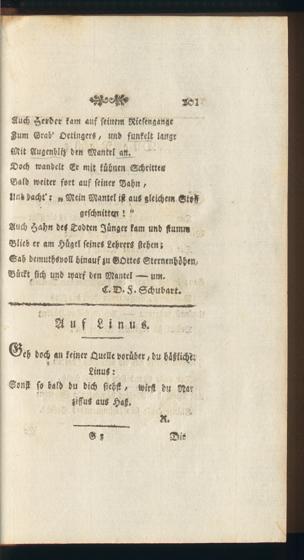 101
Auch Herder kam auf seinem Riesengange
Zum Grab' Oetingers, und funkelt lange
Mit Augenbliz den Mantel an.
Doch wandelt Er mit kühnen Schritten
Bald weiter fort auf seiner Bahn,
Und dacht': „Mein Mantel ist aus gleichem Stoff
geschnitten!“
Auch Hahn des Todten Jünger kam und stumm
Blieb er am Hügel seines Lehrers stehen;
Sah demuthsvoll hinauf zu GOttes Sternenhöhen,
Bückt sich und warf den Mantel — um.
C. D. F. Schubart.
Auf Linus.
Geh doch an keiner Quelle vorüber, du häßlicher
Linus:
Sonst so bald du dich siehst, wirst du Nar
zissus aus Haß.
R.
G 3 Die